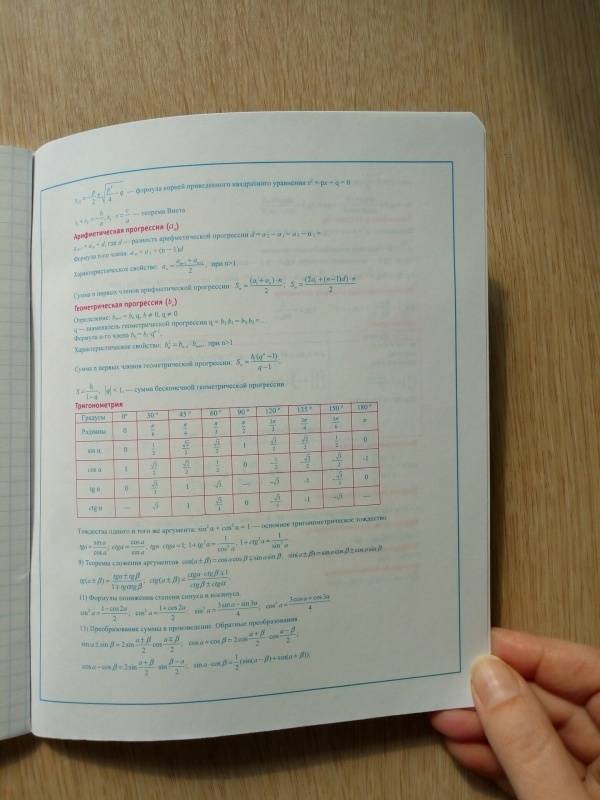 x₁,₂ = −p/2 ± √(p²/4 − q) — формула корней приведенного квадратного уравнения x² + px + q = 0
x₁ + x₂ = −b/a, x₁ · x₂ = c/a — теорема Виета
Арифметическая прогрессия (aₙ)
aₙ₊₁ = aₙ + d, где d — разность арифметической прогрессии d = a₂ − a₁ = a₃ − a₂ =
Формула n-го члена: aₙ = a₁ + (n − 1)d
Характеристическое свойство: aₙ = (aₙ₋₁ + aₙ₊₁)/2, при n>1
Сумма n первых членов арифметической прогрессии: Sₙ = (a₁ + aₙ) · n/2; Sₙ = (2a₁ + (n−1)d) · n/2
Геометрическая прогрессия (bₙ)
Определение: bₙ₊₁ = bₙ q, b ≠ 0, q ≠ 0
q — знаменатель геометрической прогрессии
Формула n-го члена bₙ = b₁ · qⁿ⁻¹
Характеристическое свойство: при n>1
Сумма n первых членов геометрической прогрессии: Sₙ = b₁(qⁿ − 1)/(q − 1)
S = b₁/(1 − q), |q| < 1, — сумма бесконечной геометрической прогрессии
Тригонометрия
Градусы 0° 30° 45° 60° 90° 120° 135° 150° 180°
Радианы 0 π/6 π/4 π/3 π/2 2π/3 3π/4 5π/6 π
sin α 0 1/2 √2/2 √3/2 1 √3/2 √2/2 1/2 0
cos α 1 √3/2 √2/2 1/2 0 −1/2 −√2/2 −√3/2 -1
tg α 0 √3/3 1 √3 — −√3 -1 −√3/3 0
ctg α — √3 1 √3/3 0 −√3/3 -1 −√3 —
Тождества одного и того же аргумента: sin² α + cos² α = 1 — основное тригонометрическое тождество
tgα = sin α/cos α; ctgα = cos α/sin α; tgα · ctgα = 1; 1 + tg² α = 1/cos² α; 1 + ctg² α = 1/sin² α
9) Теорема сложения аргументов cos(α ± β) = cos α cos β ∓ sin α sin β, sin(α ± β) = sin α cos β ± cos α sin β
tg(α ± β) = (tgα ± tgβ)/(1 ∓ tgαtgβ); ctg(α ± β) = (ctgα · ctgβ ∓ 1)/(ctgβ ± ctgα)
11) Формулы понижения степени синуса и косинуса.
sin² α = (1 − cos 2α)/2; cos² α = (1 + cos 2α)/2; sin³ α = (3 sin α − sin 3α)/4; cos³ α = (3 cos α + cos 3α)/4
13) Преобразование суммы в произведение. Обратные преобразования
sin α ± sin β = 2 sin (α ± β)/2 cos (α ∓ β)/2; cos α + cos β = 2 cos (α + β)/2 cos (α − β)/2;
cos α − cos β = 2 sin (α + β)/2 sin (β − α)/2; sin α · cos β = 1/2 (sin(α − β) + sin(α + β));